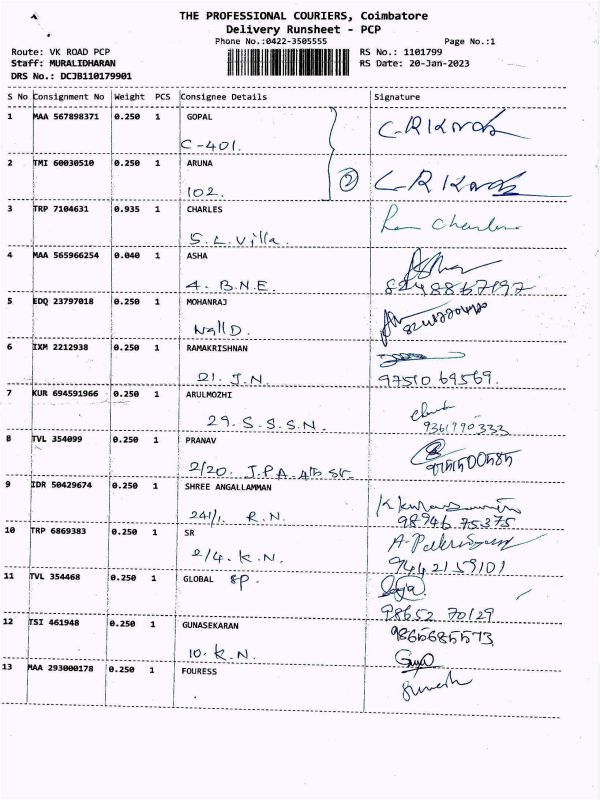 THE PROFESSIONAL COURIERS, Coimbatore
Delivery Runsheet - PCP
Phone No.:0422-3505555 Page No.:1
Route: VK ROAD PCP RS No.: 1101799
Staff: MURALIDHARAN RS Date: 20-Jan-2023
DRS No.: DCJB110179901
S No Consignment No Weight PCS Consignee Details Signature
1 MAA 567898371 0.250 1 GOPAL
C-401.
2 TMI 60030510 0.250 1 ARUNA
102. 2
3 TRP 7104631 0.935 1 CHARLES
S.L. Villa.
4 MAA 565966254 0.040 1 ASHA
4. B.N.E.
5 EDQ 23797018 0.250 1 MOHANRAJ
6 IXM 2212938 0.250 1 RAMAKRISHNAN
21. J.N. 97510 69569.
7 KUR 694591966 0.250 1 ARULMOZHI
29. S.S.S.N. 9361790333
8 TVL 354099 0.250 1 PRANAV
2/20. J.P.A. 4th St. 9751500585
9 IDR 50429674 0.250 1 SHREE ANGALLAMMAN
241/1. R.N. 98946 75375
10 TRP 6869383 0.250 1 SR
2/4. K.N. 9442159101
11 TVL 354468 0.250 1 GLOBAL SP.
98652 70129
12 TSI 461948 0.250 1 GUNASEKARAN 9865685573
10. K.N.
13 MAA 293000178 0.250 1 FOURESS